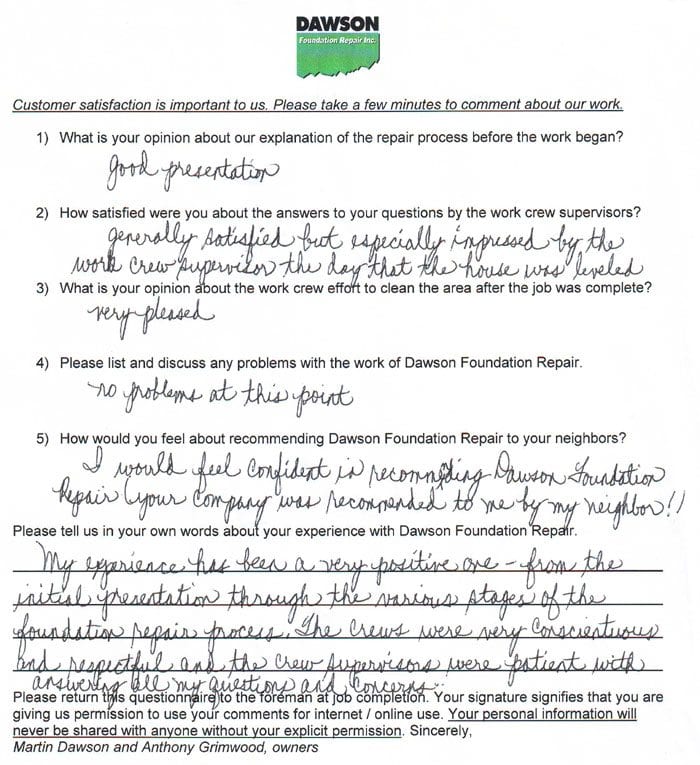 DAWSON
Foundation Repair Inc.
Customer satisfaction is important to us. Please take a few minutes to comment about our work.
1) What is your opinion about our explanation of the repair process before the work began?
good presentation
2) How satisfied were you about the answers to your questions by the work crew supervisors?
generally satisfied but especially impressed by the
work crew supervisor the day that the house was leveled
3) What is your opinion about the work crew effort to clean the area after the job was complete?
very pleased
4) Please list and discuss any problems with the work of Dawson Foundation Repair.
no problems at this point
5) How would you feel about recommending Dawson Foundation Repair to your neighbors?
I would feel confident in recommending Dawson Foundation
Repair (your company was recommended to me by my neighbor!!
Please tell us in your own words about your experience with Dawson Foundation Repair.
My experience has been a very positive one - from the
initial presentation through the various stages of the
foundation repair process. The crews were very conscientuous
and respectful and the crew supervisors were patient with
answering all my questions and concerns.
Please return this questionnaire to the foreman at job completion. Your signature signifies that you are
giving us permission to use your comments for internet / online use. Your personal information will
never be shared with anyone without your explicit permission. Sincerely,
Martin Dawson and Anthony Grimwood, owners